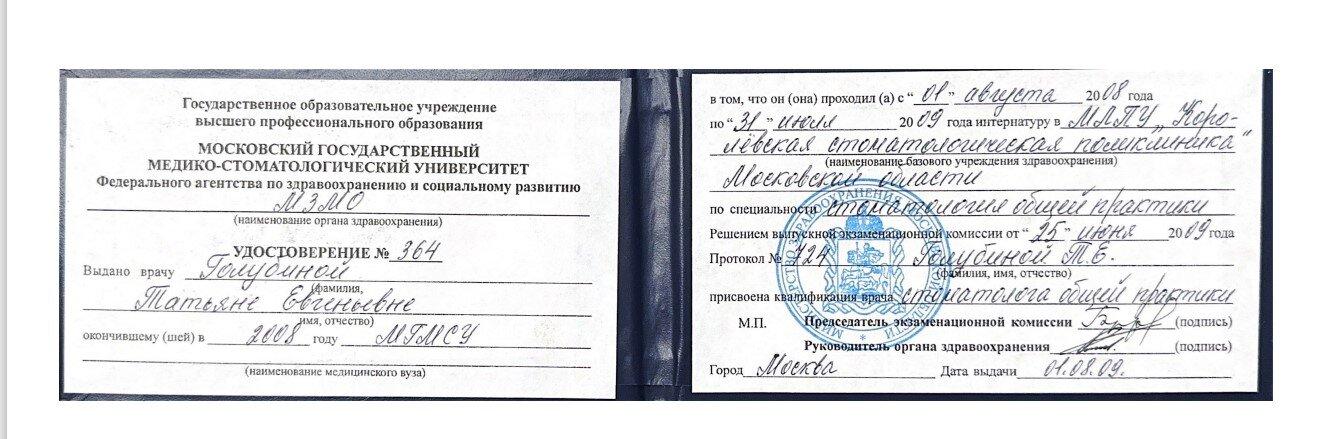 Государственное образовательное учреждение
высшего профессионального образования
МОСКОВСКИЙ ГОСУДАРСТВЕННЫЙ
МЕДИКО-СТОМАТОЛОГИЧЕСКИЙ УНИВЕРСИТЕТ
Федерального агентства по здравоохранению и социальному развитию
МЗМО
(наименование органа здравоохранения)
УДОСТОВЕРЕНИЕ № 364
Выдано врачу Голубиной
(фамилия,
Татьяне Евгеньевне
имя, отчество)
окончившему (шей) в 2008 году МГМСУ
(наименование медицинского вуза)
в том, что он (она) проходил (а) с “ 01 ” августа 2008 года
по “ 31 ” июля 2009 года интернатуру в ММПУ „Коро-
лёвская стоматологическая поликлиника“
(наименование базового учреждения здравоохранения)
Московской области
по специальности стоматология общей практики
Решением выпускной экзаменационной комиссии от “ 25 ” июня 2009 года
Протокол № 724 Голубиной Т.Е.
(фамилия, имя, отчество)
присвоена квалификация врача стоматолога общей практики
М.П. Председатель экзаменационной комиссии (подпись)
Руководитель органа здравоохранения (подпись)
Город Москва Дата выдачи 01.08.09.
МИНИСТЕРСТВО ЗДРАВООХРАНЕНИЯ МОСКОВСКОЙ ОБЛАСТИ